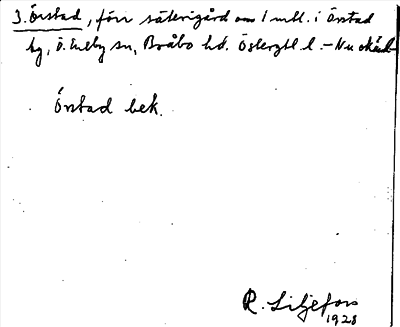 3. Örstad, förr säterigård om 1 mtl. i Örstad
by, Ö. Eneby sn, Bråbo hd. Östergtl. l. – Nu okänd
Örstad bek.
R. Liljefors
1928